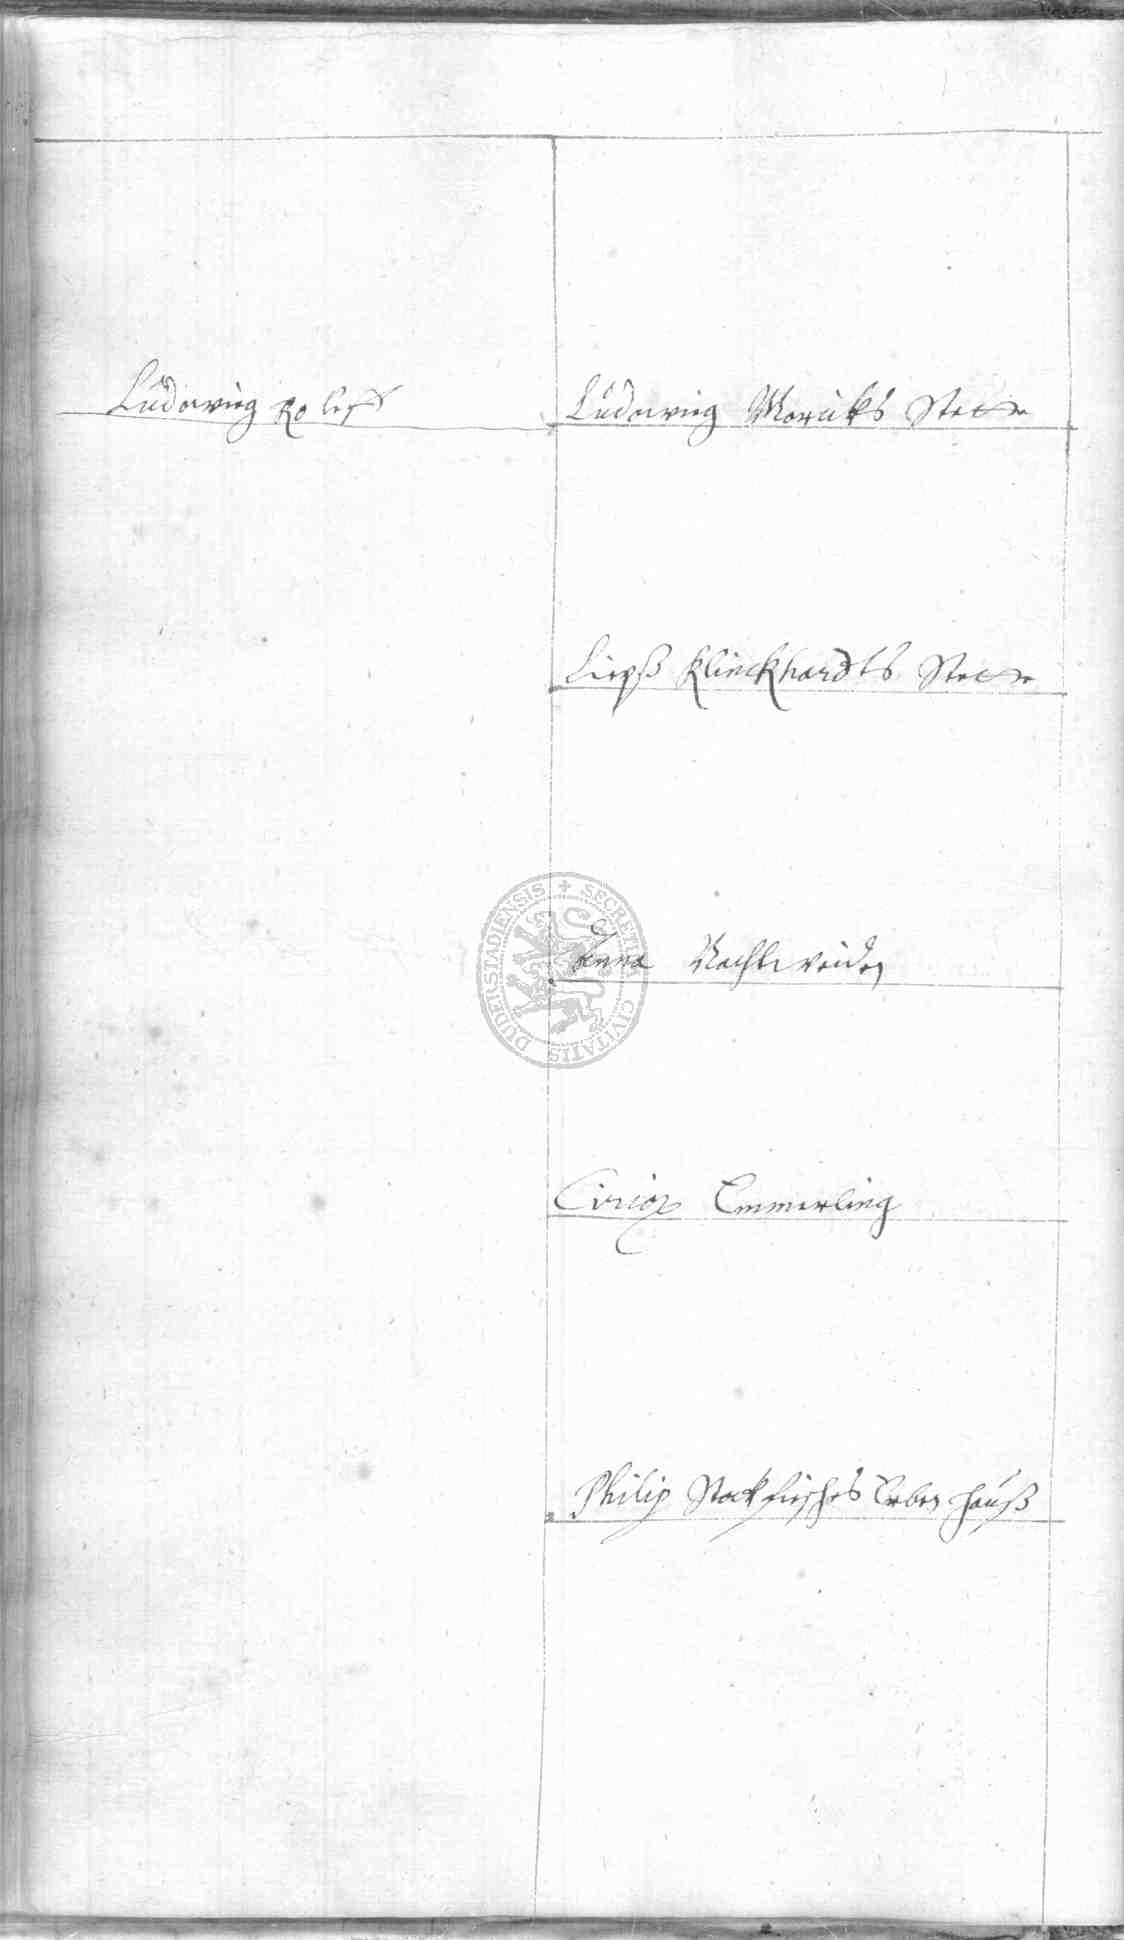 Ludowieg Roleff
Ludowieg Moricks Stette
Liepß Klinckhardts Stette
Anna Nachtweiden
Ciriax Emmerling
Philip Stockfisches Erben Hauß
SECRETUM CIVITATIS DUDERSTADIENSIS